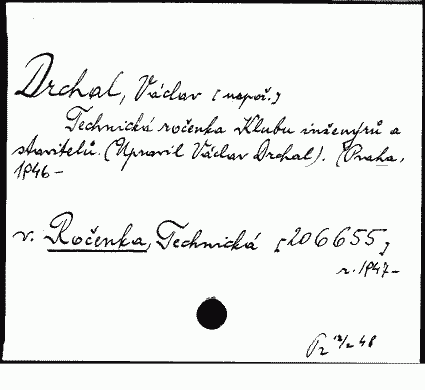 Drchal, Václav [uspoř.]
Technická ročenka Klubu inženýrů a
stavitelů. (Upravil Václav Drchal). (Praha,
1946-
v. Ročenka, Technická [206655]
r. 1947-
48